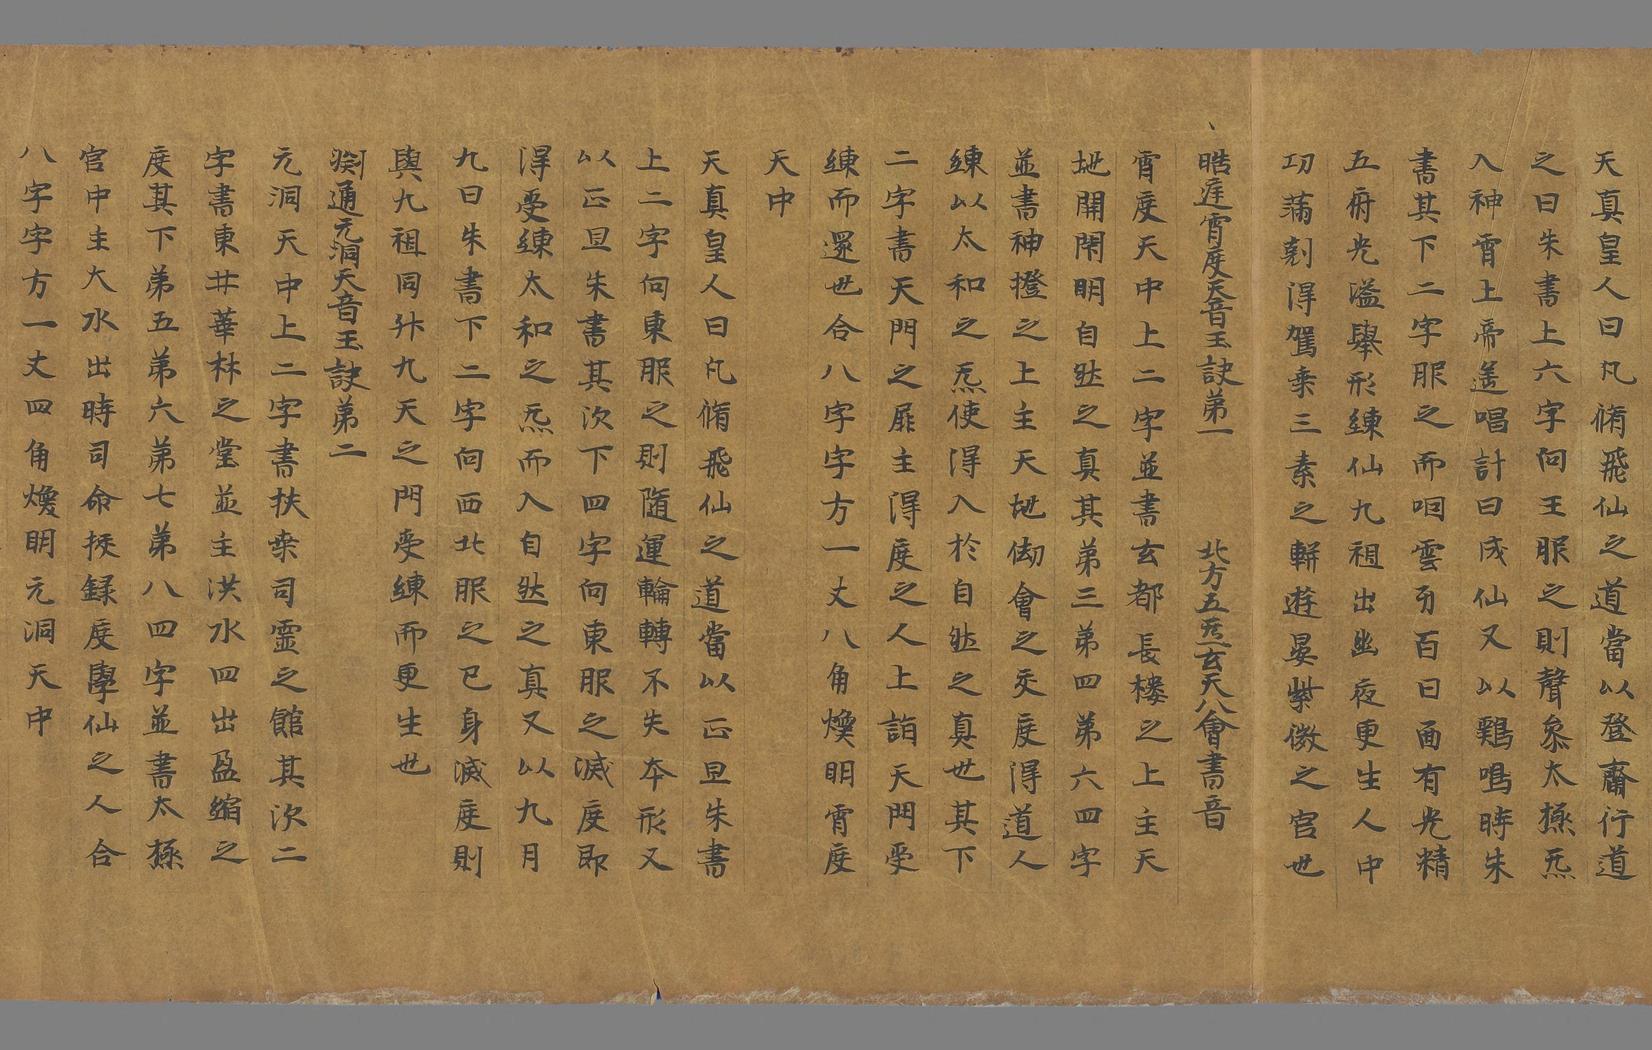 天真皇人曰凡脩飛仙之道當以登齋行道
之日朱書上六字向王服之則聲參太極炁
入神霄上帝遥唱計日成仙又以鷄鳴時朱
書其下二字服之而咽雲牙百日面有光精
五府光溢舉形練仙九祖出幽夜更生人中
功滿剋得駕乘三素之軿遊晏紫微之宫也
晧庭霄度天音玉訣第一 北方五炁玄天八會書音
霄度天中上二字並書玄都長樓之上主天
地開閇明自然之真其第三第四第六四字
並書神撜之上主天地劫會之交度得道人
練以太和之炁使得入於自然之真也其下
二字書天門之扉主得度之人上詣天門受
練而還也合八字字方一丈八角煥明霄度
天中
天真皇人曰凡脩飛仙之道當以正旦朱書
上二字向東服之則隨運輪轉不失本形又
以正旦朱書其次下四字向東服之滅度即
得受練太和之炁而入自然之真又以九月
九日朱書下二字向西北服之已身滅度則
與九祖同升九天之門受練而更生也
淵通元洞天音玉訣第二
元洞天中上二字書扶桒司靈之館其次二
字書東井華林之堂並主洪水四出盈縮之
度其下第五第六第七第八四字並書太極
宫中主大水出時司命挍録度學仙之人合
八字字方一丈四角煥明元洞天中